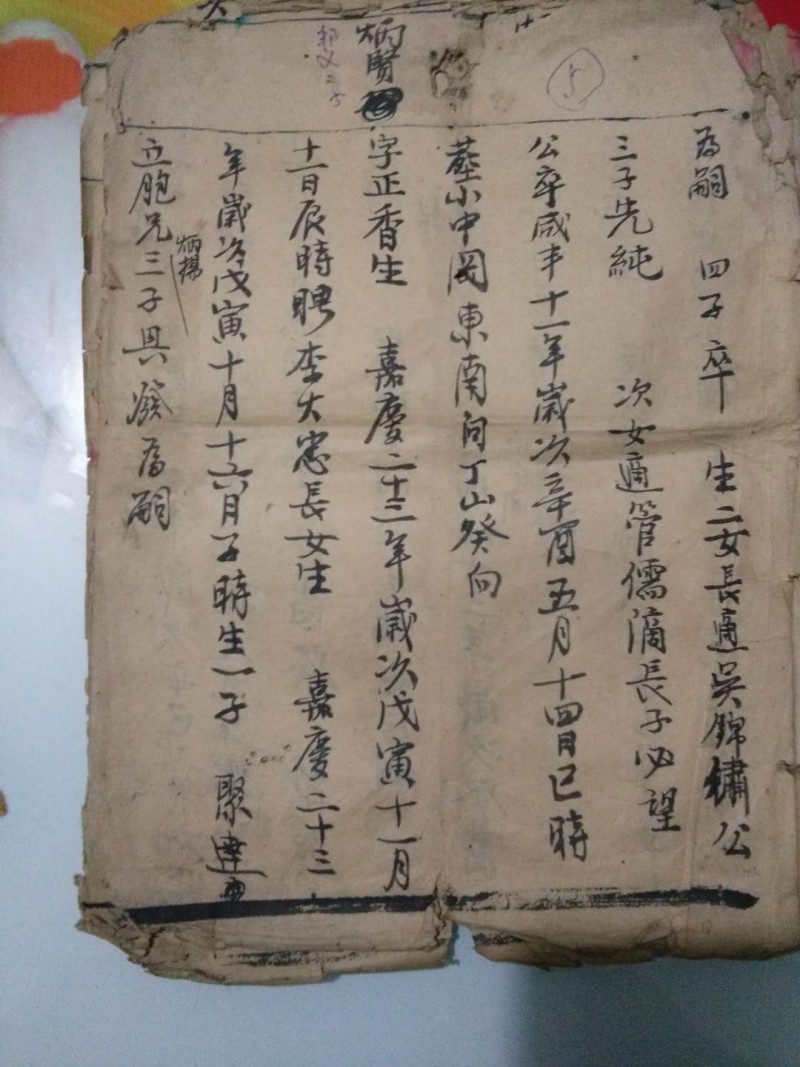 5
為嗣 四子卒 生二女長適吳錦鏽公
三子先純 次女適管儒滴長子必望
公卒咸丰十一年歲次辛酉五月十四日巳時
塟小中岡東南向丁山癸向
炳賢
字正香生 嘉慶二十三年歲次戊寅十一月
十一日辰時聘李大憲長女生 嘉慶二十三
年歲次戊寅十月十六日子時生一子 聚達
立胞兄炳揚三子具發為嗣